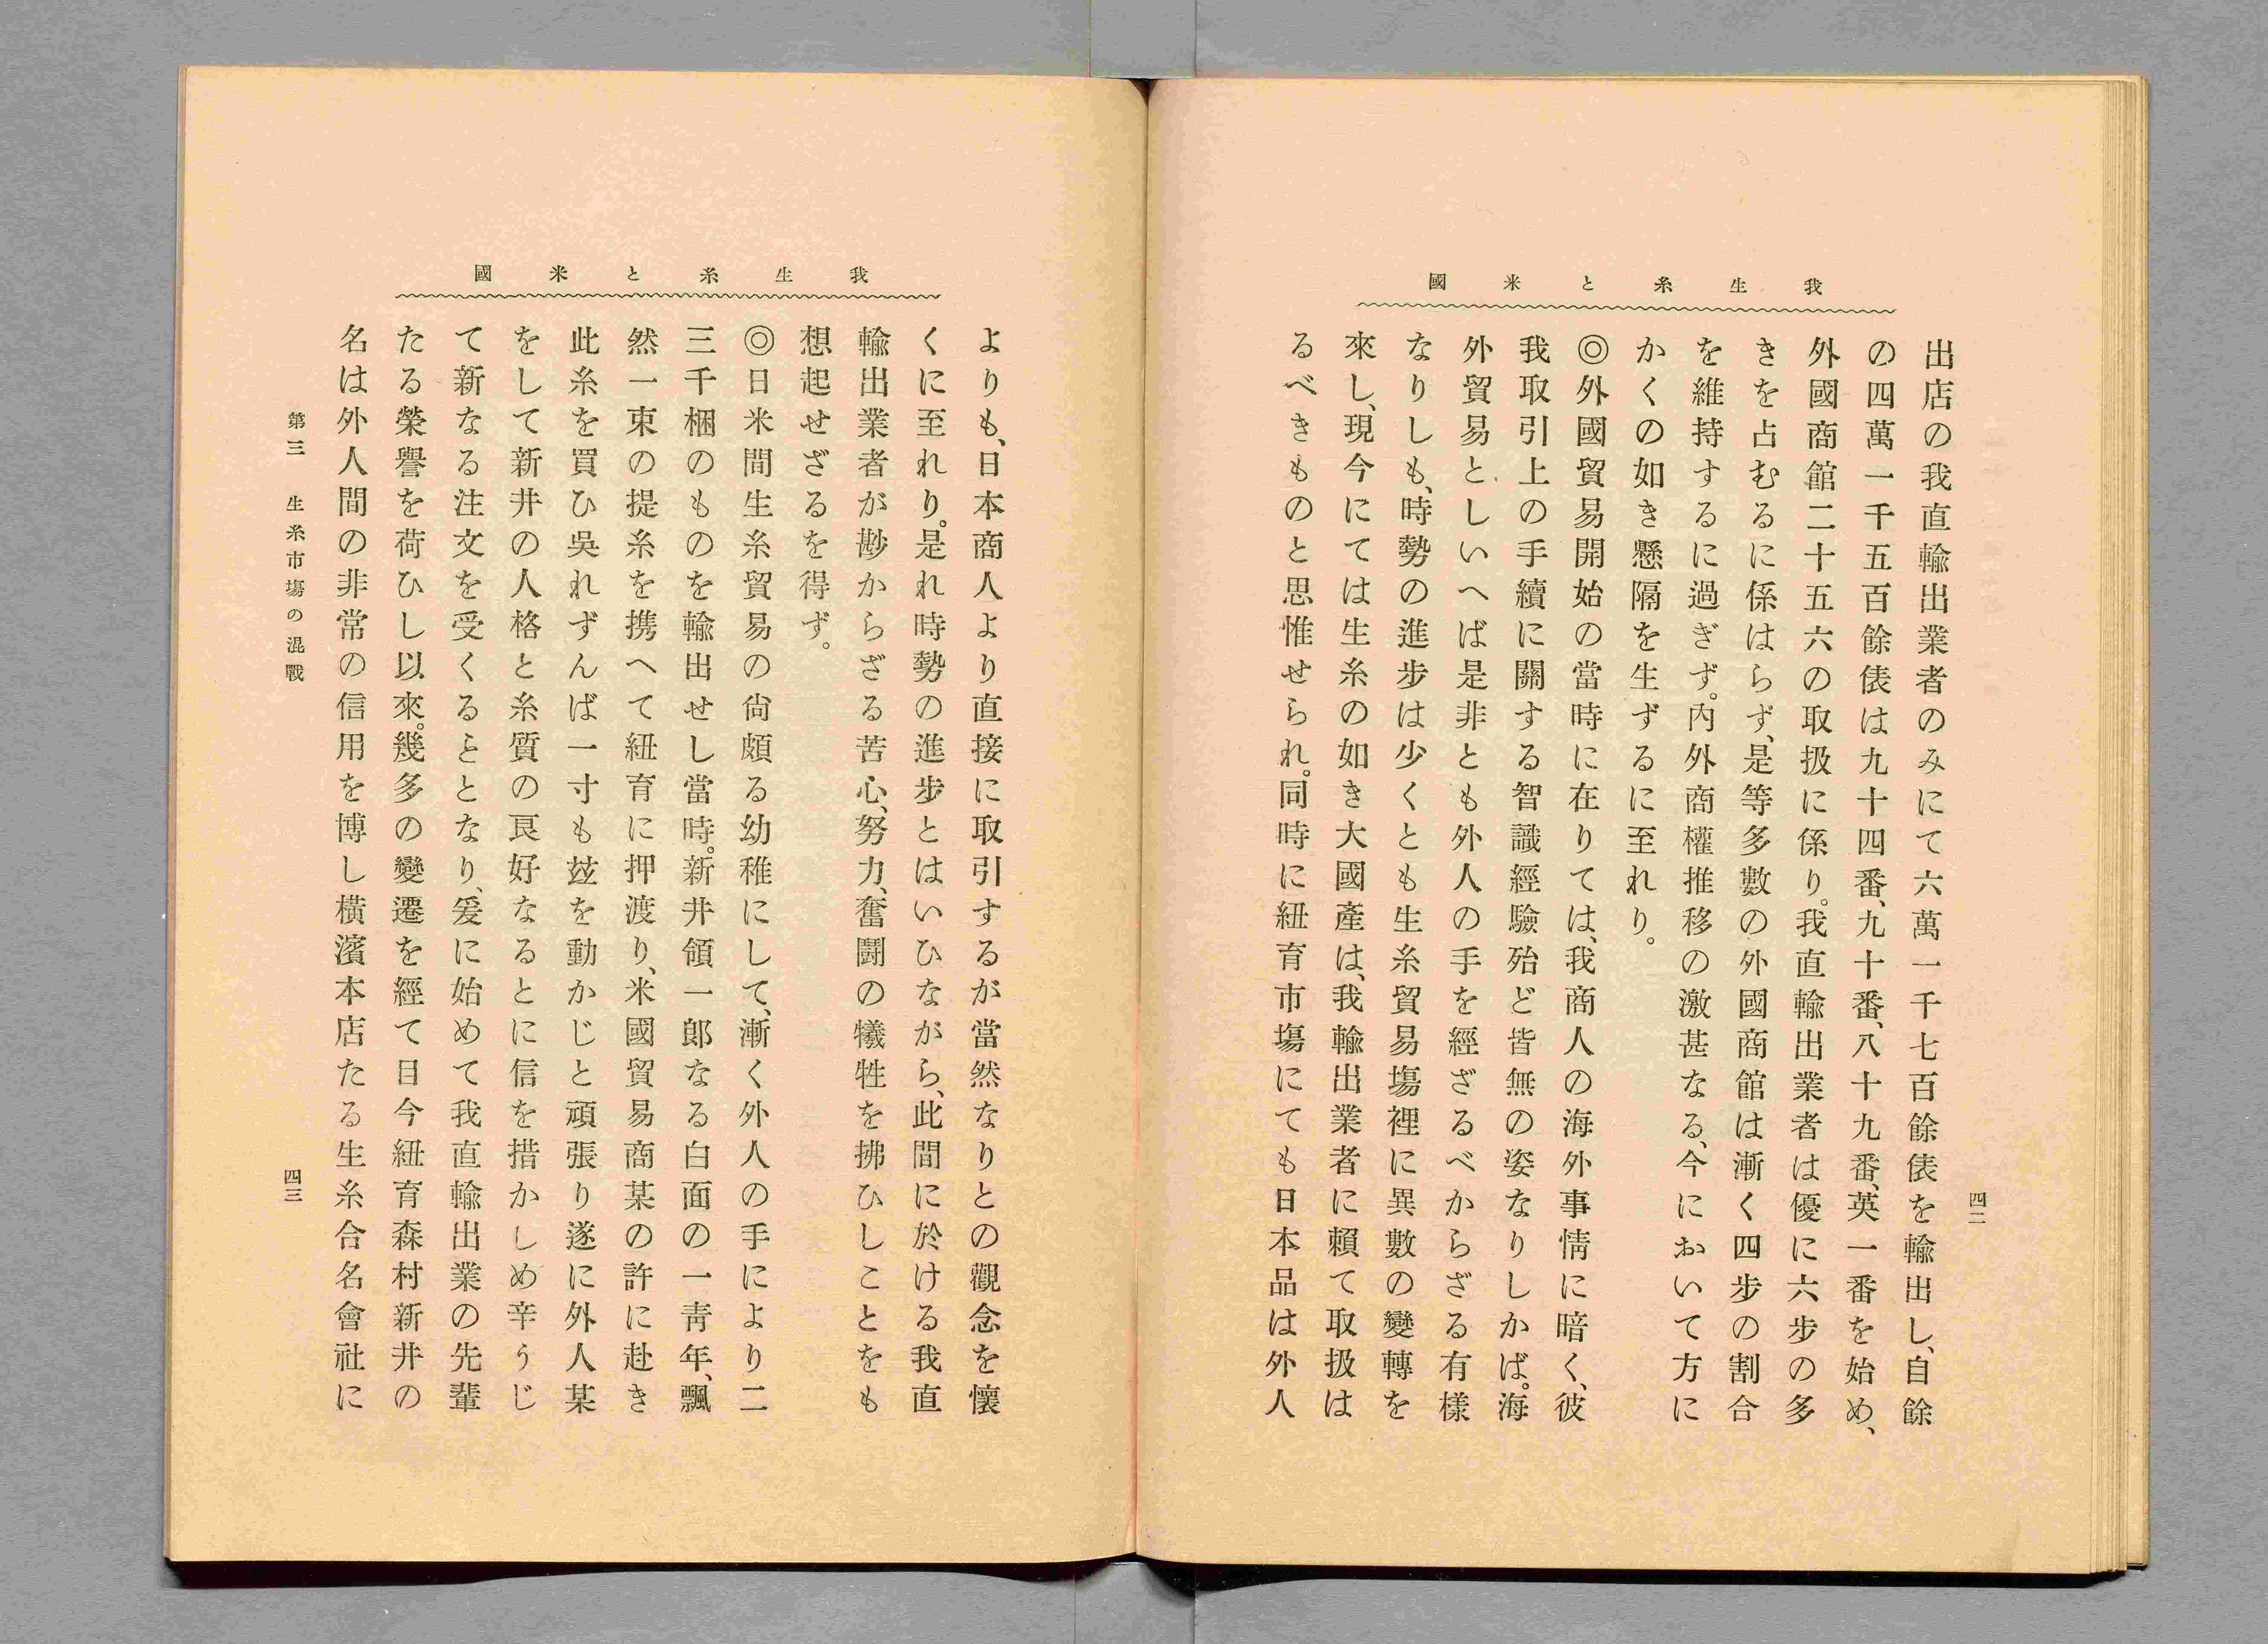 我生糸と米國
四二
出店の我直輸出業者のみにて六萬一千七百餘俵を輸出し、自餘
の四萬一千五百餘俵は九十四番、九十番、八十九番、英一番を始め、
外國商館二十五六の取扱に係り。我直輸出業者は優に六步の多
きを占むるに係はらず、是等多數の外國商館は漸く四步の割合
を維持するに過ぎず。内外商權推移の激甚なる、今において方に
かくの如き懸隔を生ずるに至れり。
◎外國貿易開始の當時に在りては、我商人の海外事情に暗く、彼
我取引上の手續に關する智識經驗殆ど皆無の姿なりしかば。海
外貿易としいへば是非とも外人の手を經ざるべからざる有樣
なりしも、時勢の進步は少くとも生糸貿易塲裡に異數の變轉を
來し、現今にては生糸の如き大國產は、我輸出業者に賴て取扱は
るべきものと思惟せられ。同時に紐育市塲にても日本品は外人
我生糸と米國
よりも、日本商人より直接に取引するが當然なりとの觀念を懷
くに至れり。是れ時勢の進步とはいひながら、此間に於ける我直
輸出業者が尠からざる苦心、努力、奮鬪の犧牲を拂ひしことをも
想起せざるを得ず。
◎日米間生糸貿易の尙頗る幼稚にして、漸く外人の手により二
三千梱のものを輸出せし當時。新井領一郞なる白面の一靑年、飄
然一束の提糸を携へて紐育に押渡り、米國貿易商某の許に赴き
此糸を買ひ吳れずんば一寸も玆を動かじと頑張り遂に外人某
をして新井の人格と糸質の良好なるとに信を措かしめ辛うじ
て新なる注文を受くるととなり、爰に始めて我直輸出業の先輩
たる榮譽を荷ひし以來。幾多の變遷を經て日今紐育森村新井の
名は外人間の非常の信用を博し橫濱本店たる生糸合名會社に
第三　生糸市塲の混戰
四三